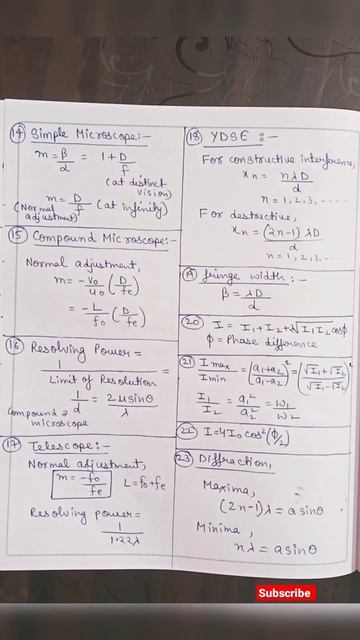 14 Simple Microscope:-
m = β/α = 1 + D/f
(at distinct vision)
m = D/f (at infinity)
(Normal adjustment)
15 Compound Microscope:-
Normal adjustment,
m = -v₀/u₀ (D/fe)
= -L/f₀ (D/fe)
16 Resolving Power =
1/Limit of Resolution =
1/d = 2μsinθ/λ
Compound microscope
17 Telescope:-
Normal adjustment,
m = -f₀/fe L = f₀ + fe
Resolving power =
1/1.22λ
18 YDSE :-
For constructive interference,
xn = nλD/d
n = 1, 2, 3, ----
For destructive,
xn = (2n-1) λD/d
n = 1, 2, 3, ---
19 fringe width :-
β = λD/d
20 I = I₁ + I₂ + 2√I₁I₂ cosϕ
ϕ = Phase difference
21 Imax/Imin = (a₁+a₂/a₁-a₂)² = (√I₁+√I₂/√I₁-√I₂)²
I₁/I₂ = a₁²/a₂² = w₁/w₂
22 I = 4I₀ cos²(ϕ/2)
23 Diffraction,
Maxima,
(2n-1)λ = a sinθ
Minima,
nλ = a sinθ
Subscribe